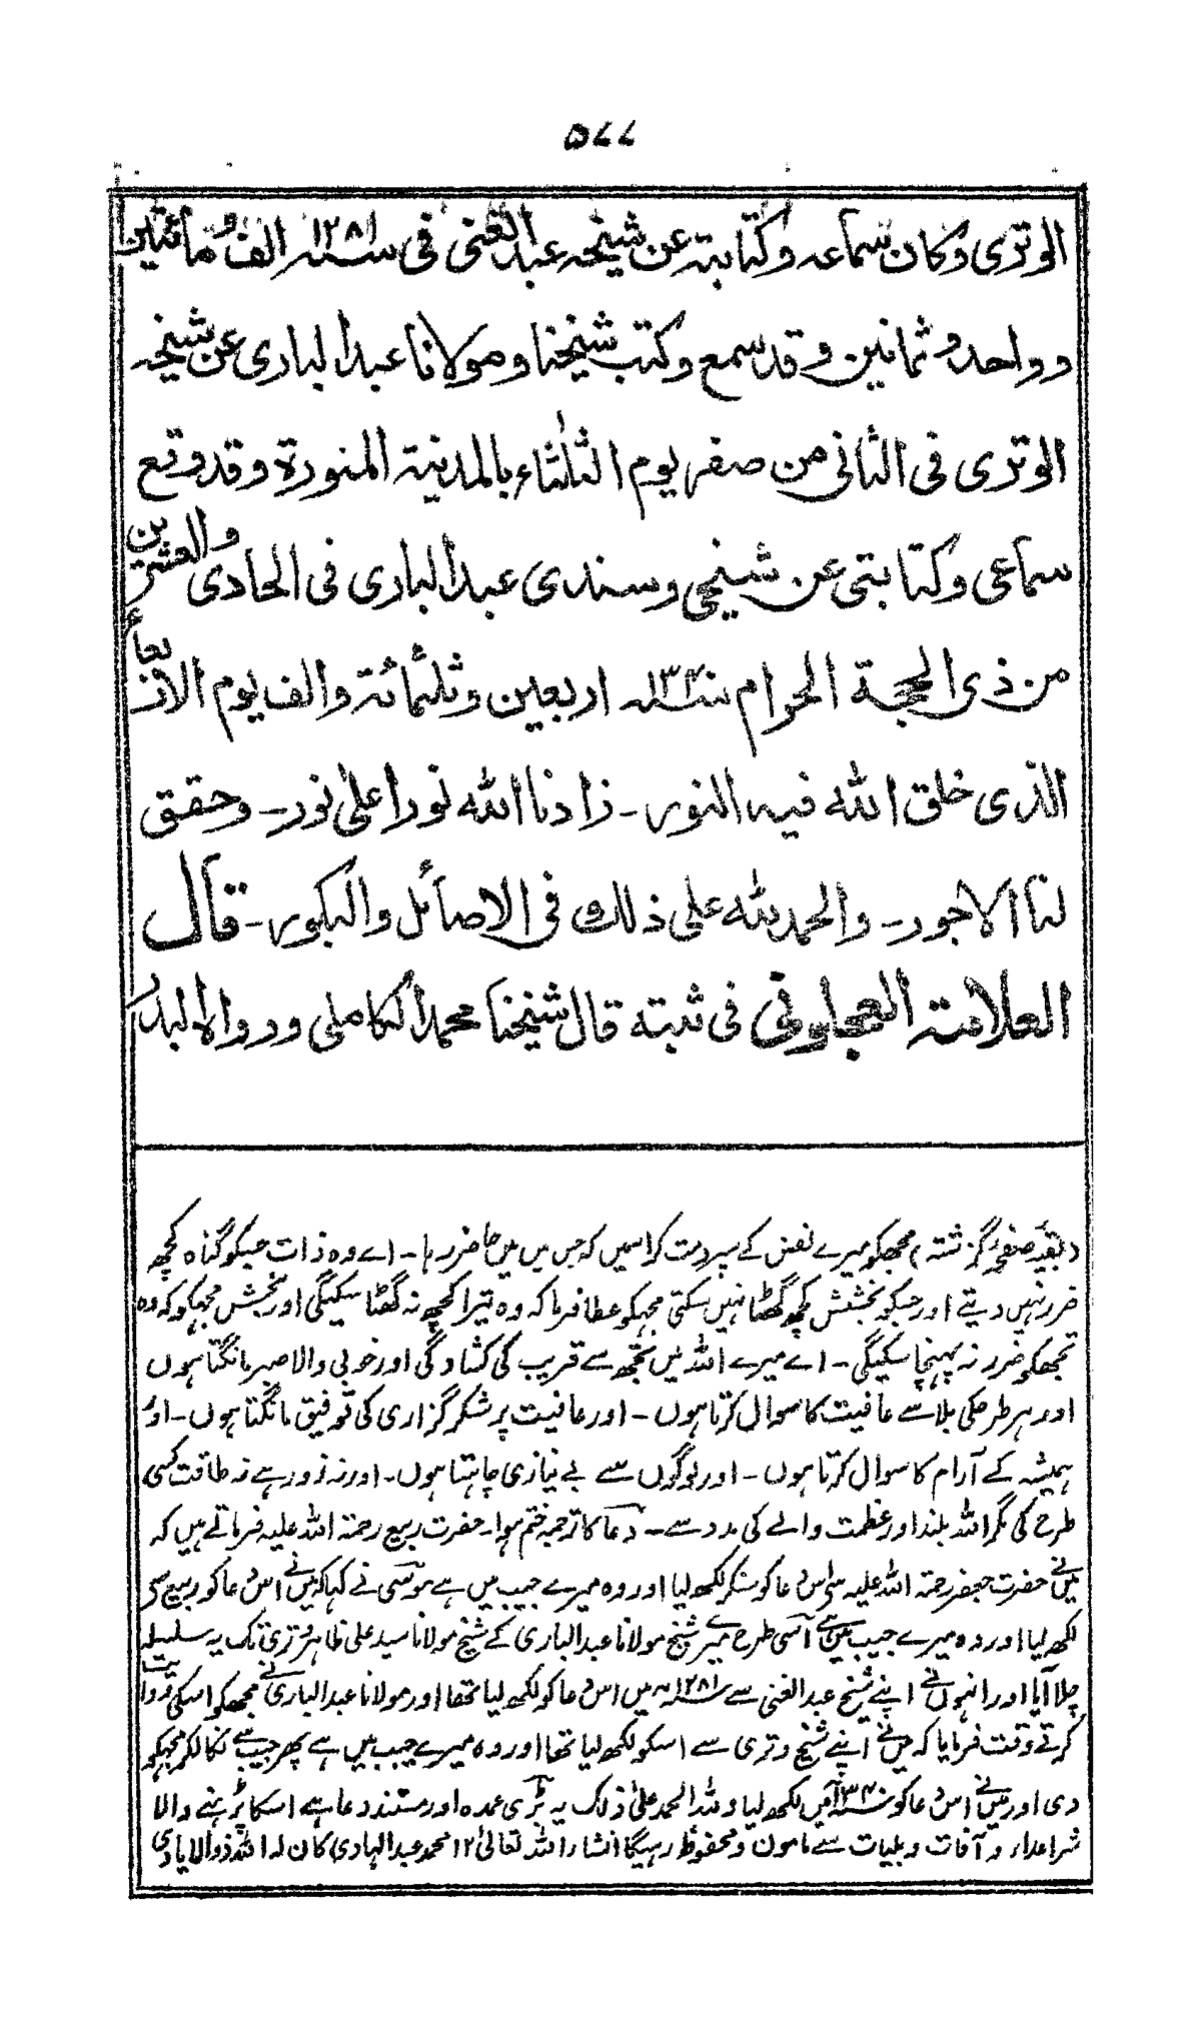 ۵۷۷
الوتری وکان سماعہ وکتابتہ عن شیخہ عبد الغنی فی سنہ ۱۲۸۱ الف ومأئتین
وواحد وثمانین وقد سمع وکتب شیخنا ومولانا عبد الباری عن شیخہ
الوتری فی الثانی من صفر یوم الثلٰثاء بالمدینۃ المنورۃ وقد وقع
سماعی وکتابتی عن شیخی وسندی عبد الباری فی الحادی والعشرین
من ذی الحجۃ الحرام سنہ ۱۳۴۰ اربعین وثلثمائۃ والف یوم الاربعاء
الذی خلق اللہ فیہ النور ۔ زادنا اللہ نورا علی نور ۔ وحقق
لنا الاجور ۔ والحمد للہ علی ذلک فی الاصائل والبکور ۔ قال
العلامۃ العجلونی فی ثبتہ قال شیخنا محمد الکاملی ورواہ البدر
(بقیہ صفحہ گزشتہ) مجھکو میرے نفس کے سپرد مت کر اسمیں کہ جس میں میں حاضر رہا ۔ اے وہ ذات جسکو گناہ کچھ
ضرر نہیں دیتے اور جسکو بخشش کچھ گھٹا نہیں سکتی مجھکو عطا فرما کہ وہ تیرا کچھ نہ گھٹا سکیگی اور بخش مجھکو کہ وہ
تجھکو ضرر نہ پہنچا سکیگی ۔ اے میرے اللہ میں تجھ سے قریب کی کشادگی اور خوبی والا صبر مانگتا ہوں
اور ہر طرحکی بلا سے عافیت کا سوال کرتا ہوں ۔ اور عافیت پر شکر گزاری کی توفیق مانگتا ہوں ۔ اور
ہمیشہ کے آرام کا سوال کرتا ہوں ۔ اور لوگوں سے بے نیازی چاہتا ہوں ۔ اور نہ زور ہے نہ طاقت کسی
طرح کی مگر اللہ بلند اور عظمت والے کی مدد سے ۔ دعا کا ترجمہ ختم ہوا ۔ حضرت ربیع رحمۃ اللہ علیہ فرماتے ہیں کہ
میں نے حضرت جعفر رحمۃ اللہ علیہ سے اس دعا کو سنکر لکھ لیا اور وہ میرے جیب میں ہے موسی نے کہا کہ میں نے اس دعا کو ربیع سے
لکھ لیا اور وہ میرے جیب میں ہے اسی طرح میرے شیخ مولانا عبد الباری کے شیخ مولانا سید علی ظاہر وتری تک یہ سلسلہ
چلا آیا اور انہوں نے اپنے شیخ عبد الغنی سے سنہ ۱۲۸۱ھ میں اس دعا کو لکھ لیا تھا اور مولانا عبد الباری نے مجھکو اسکی روایت
کرتے وقت فرمایا کہ میں نے اپنے شیخ وتری سے اسکو لکھ لیا تھا اور وہ میرے جیب میں ہے پھر جیب سے نکالکر مجھکو
دی اور میں نے اس دعا کو سنہ ۱۳۴۰ میں لکھ لیا وللہ الحمد علیٰ ذلک یہ بڑی عمدہ اور مستند دعا ہے اسکا پڑہنے والا
شر اعداء و آفات و بلیات سے مامون و محفوظ رہیگا انشاء اللہ تعالیٰ ۱۲ محمد عبد الہادی کان لہ اللہ ذوالایادی